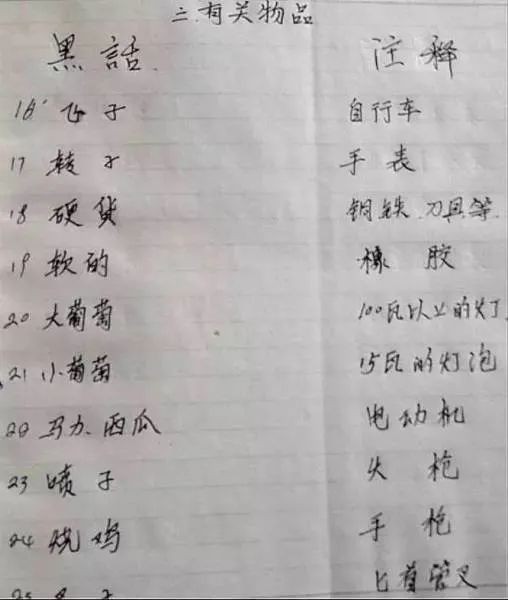 二.有关物品
黑話 注释
16 飞子 自行车
17 转子 手表
18 硬貨 钢铁.刀具等.
19 软的 橡胶
20 大葡萄 100瓦以上的灯
21 小葡萄 15瓦的灯泡
22 马力.西瓜 电动机
23 喷子 火枪
24 烧鸡 手枪
25 子 匕首管叉